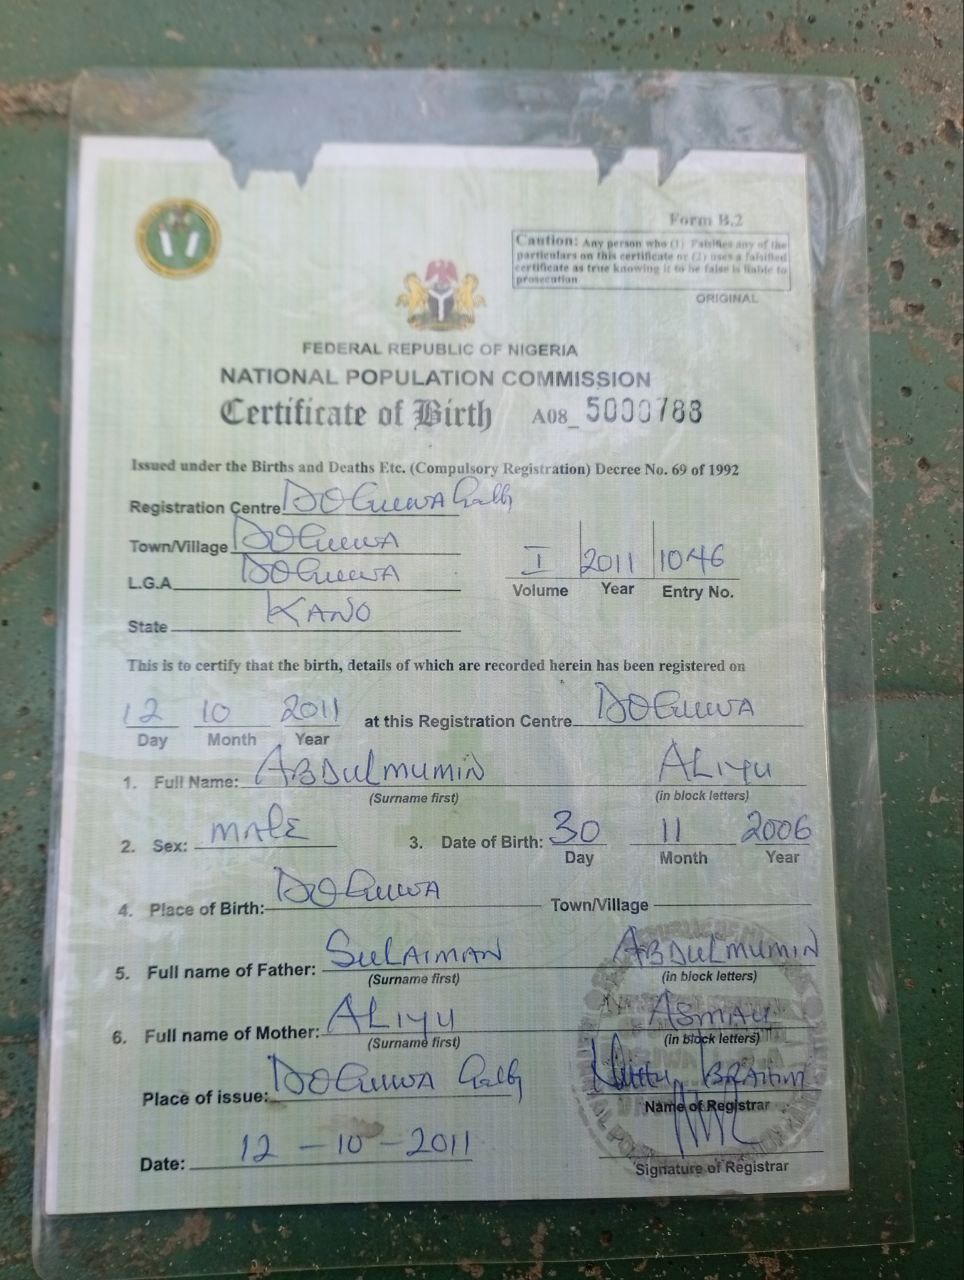 Form B.2
Caution: Any person who (1) Falsifies any of the
particulars on this certificate or (2) uses a falsified
certificate as true knowing it to be false is liable to
prosecution
ORIGINAL
FEDERAL REPUBLIC OF NIGERIA
NATIONAL POPULATION COMMISSION
Certificate of Birth A08_ 5000788
Issued under the Births and Deaths Etc. (Compulsory Registration) Decree No. 69 of 1992
Registration Centre DOGUWA
Town/Village DOGUWA
L.G.A DOGUWA
I 2011 1046
Volume Year Entry No.
State KANO
This is to certify that the birth, details of which are recorded herein has been registered on
12 10 2011 at this Registration Centre DOGUWA
Day Month Year
1. Full Name: ABDULMUMIN ALIYU
(Surname first) (in block letters)
2. Sex: MALE 3. Date of Birth: 30 11 2006
Day Month Year
4. Place of Birth: DOGUWA Town/Village
5. Full name of Father: SULAIMAN ABDULMUMIN
(Surname first) (in block letters)
6. Full name of Mother: ALIYU ASMAU
(Surname first) (in block letters)
Place of issue: DOGUWA IBRAHIM
Name of Registrar
Date: 12 - 10 - 2011
Signature of Registrar